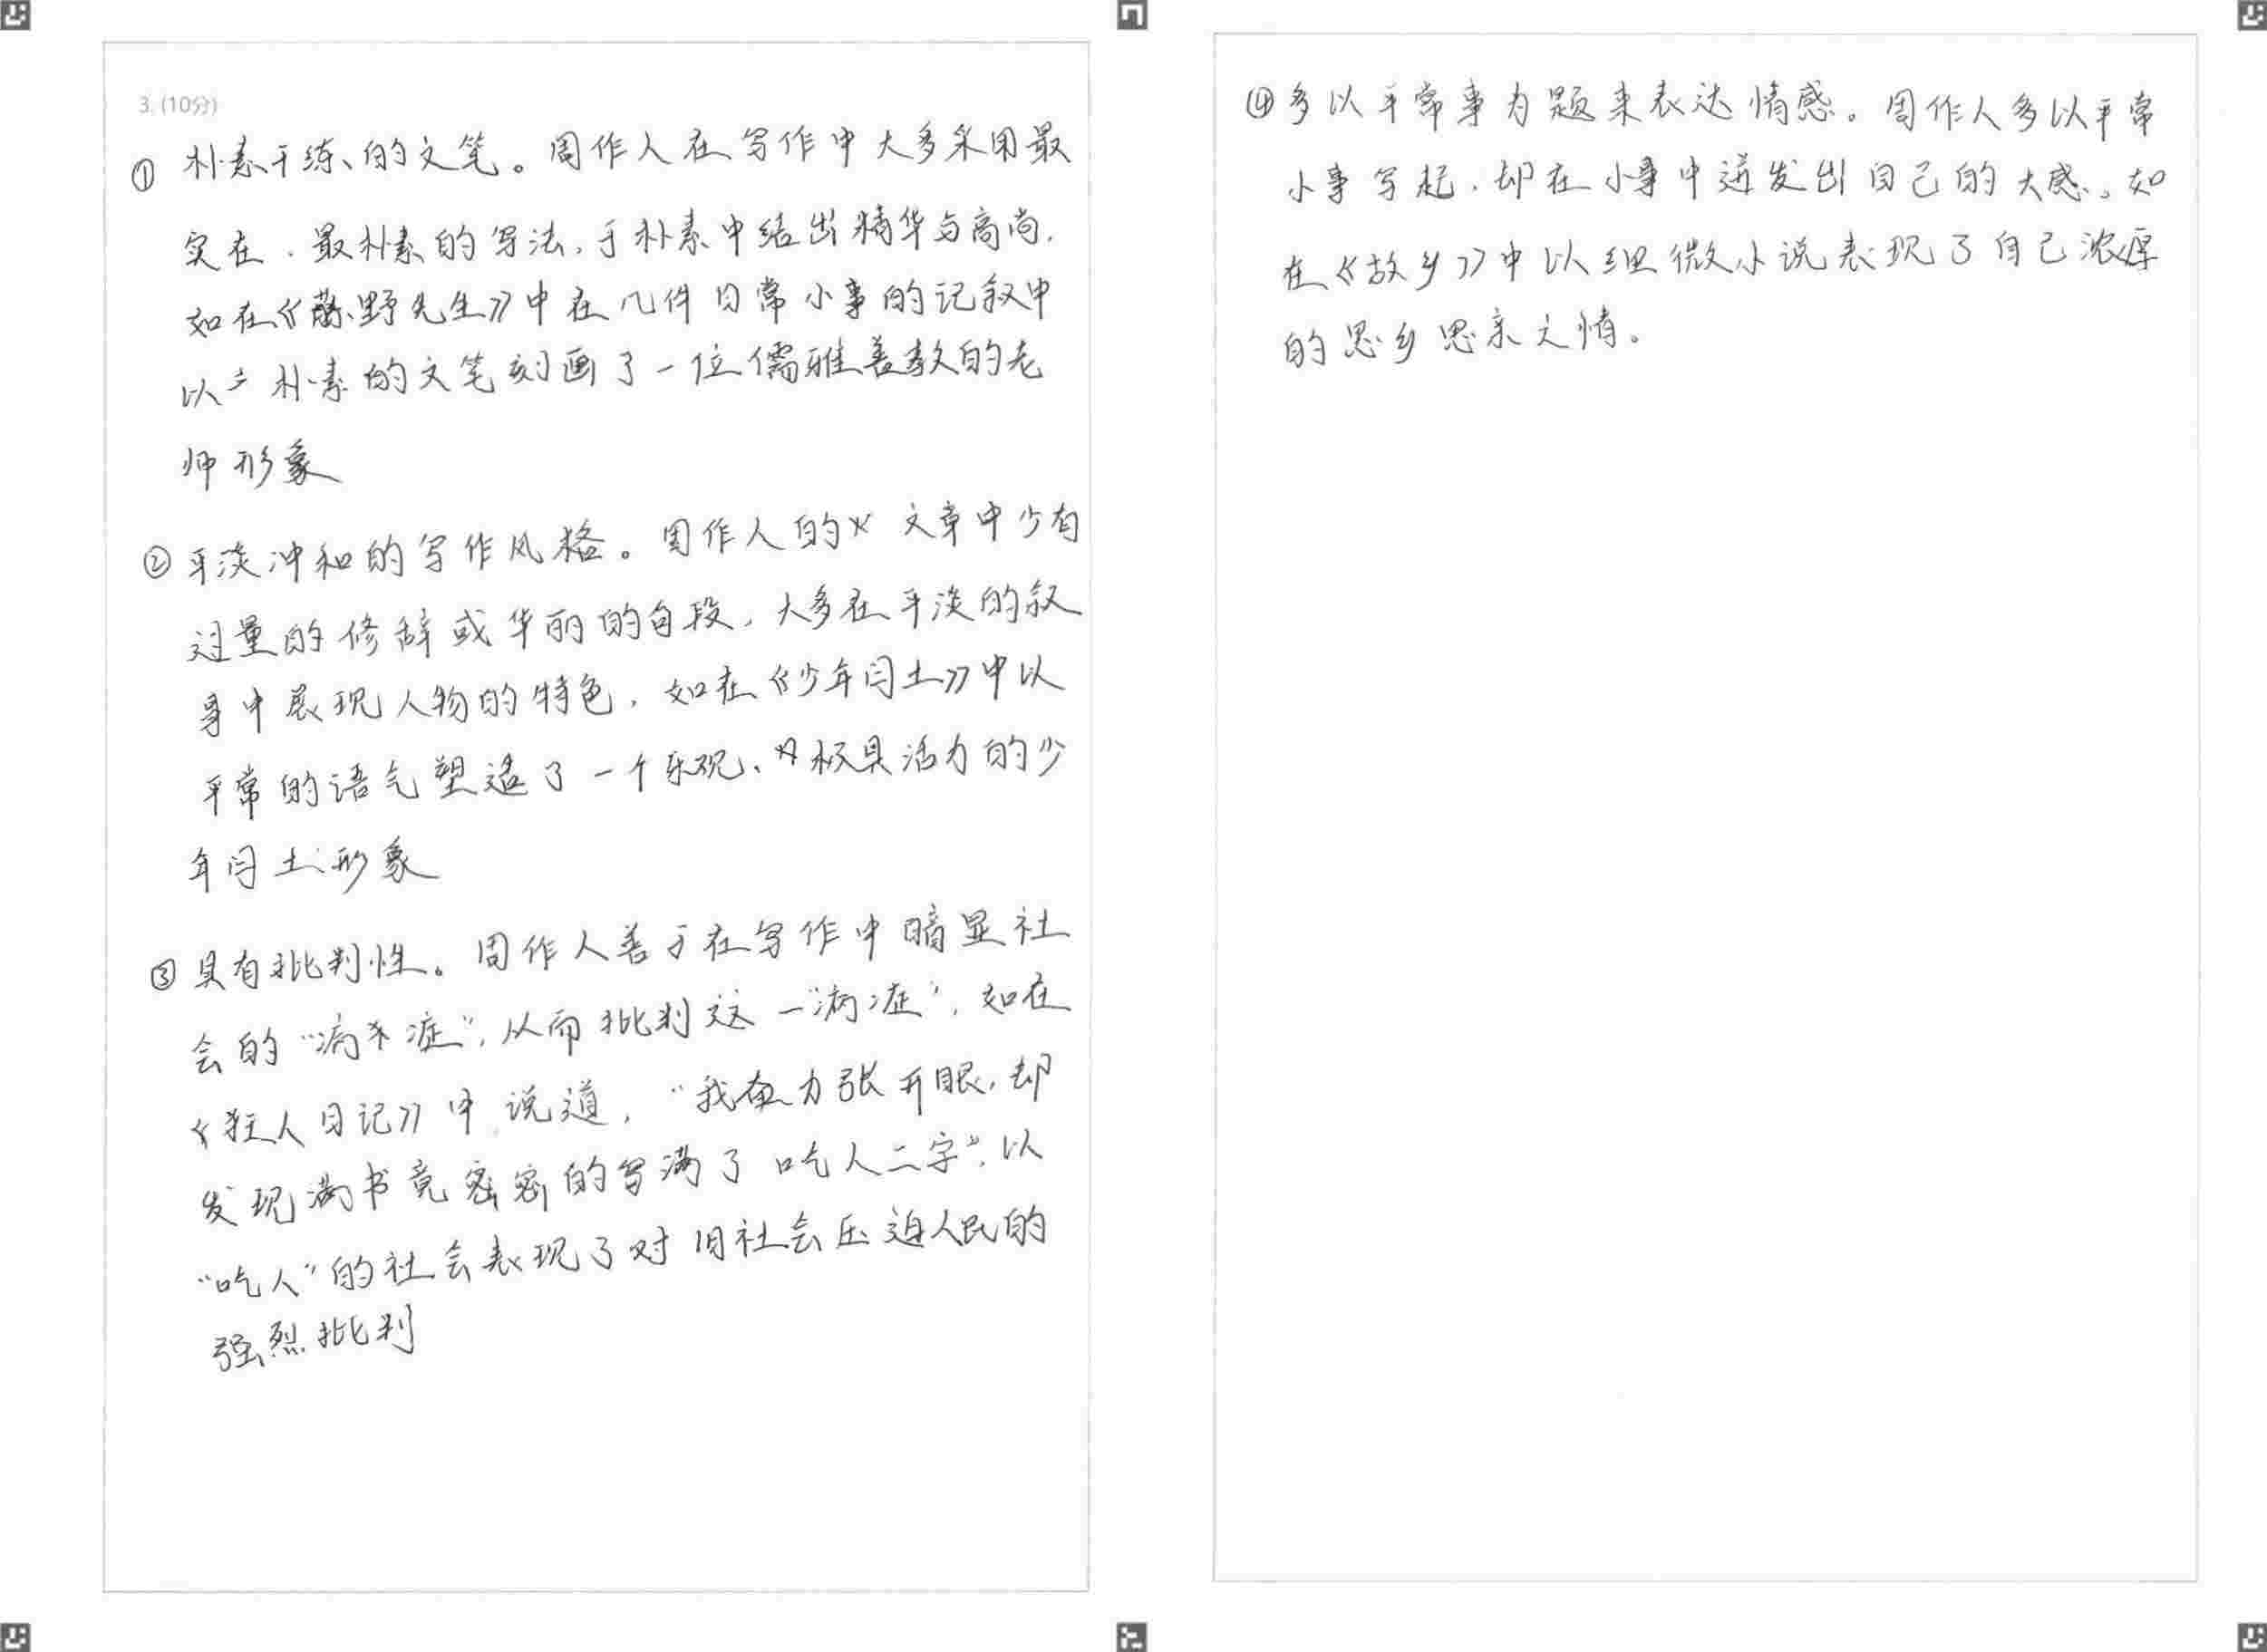 3. (10分)
① 朴素干练的文笔。周作人在写作中大多采用最
实在、最朴素的写法,于朴素中结出精华与高尚,
如在《藤野先生》中在几件日常小事的记叙中
以 朴素的文笔刻画了一位儒雅善教的老
师形象
② 平淡冲和的写作风格。周作人的 文章中少有
过量的修辞或华丽的句段,大多在平淡的叙
事中展现人物的特色,如在《少年闰土》中以
平常的语气塑造了一个乐观、极具活力的少
年闰土形象
③ 具有批判性。周作人善于在写作中暗显社
会的“病症”,从而批判这一“病症”,如在
《狂人日记》中说道,“我奋力张开眼,却
发现满书竟密密的写满了吃人二字”,以
“吃人”的社会表现了对旧社会压迫人民的
强烈批判
④ 多以平常事为题来表达情感。周作人多以平常
小事写起,却在小事中迸发出自己的大感。如
在《故乡》中以细微小说表现了自己浓厚
的思乡思亲之情。